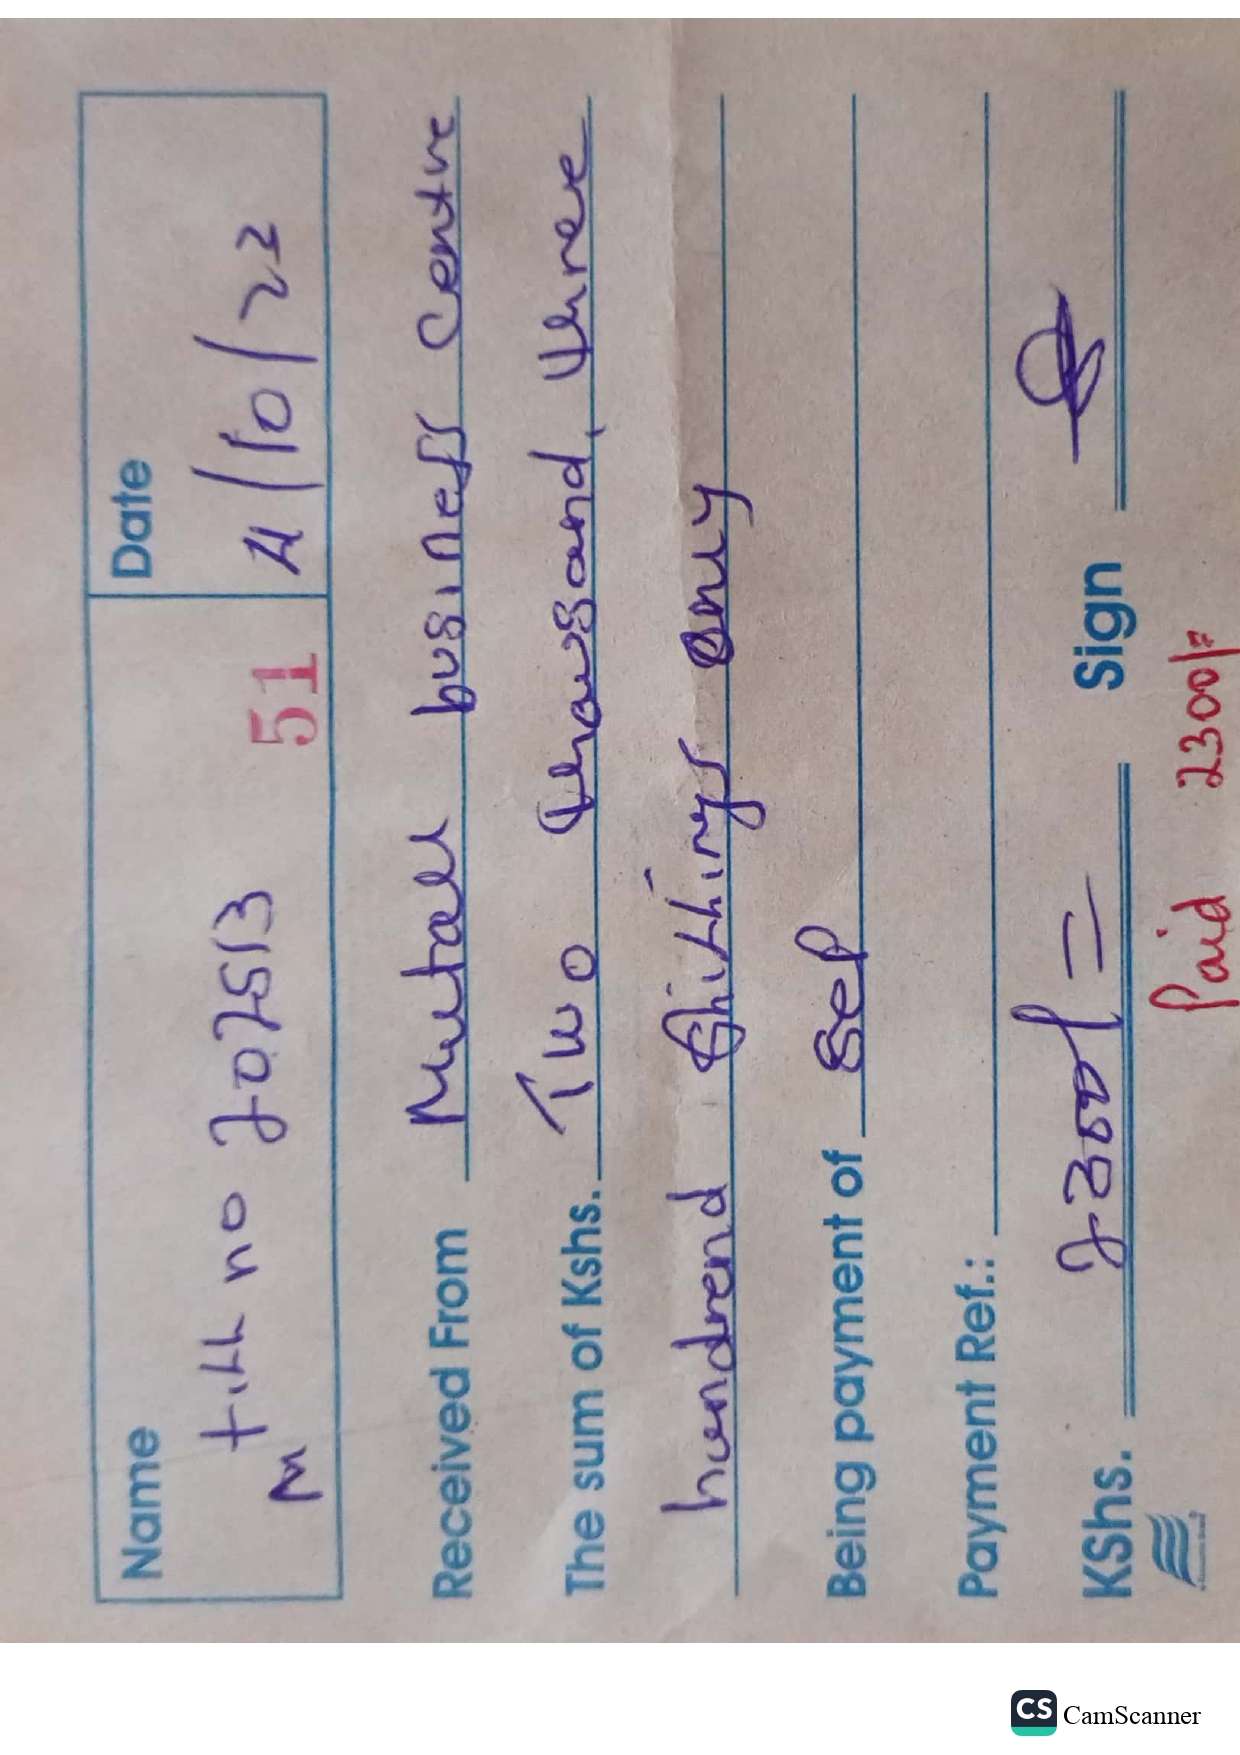 Name
Date
till no 202513
M
51
4/10/22
Received From Mutall business Centre
The sum of Kshs. Two thousand, three
hundrend shillings only
Being payment of Sep
Payment Ref.:
KShs. 2300/=
Sign
Paid 2300/=
CS CamScanner